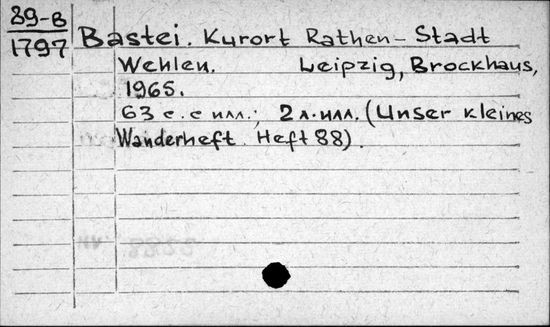 89-В
1797
Bastei. Kurort Rathen - Stadt
Wehlen. Leipzig, Brockhaus,
1965.
63 с. с илл.; 2 л. илл. (Unser kleines
Wanderheft. Heft 88).